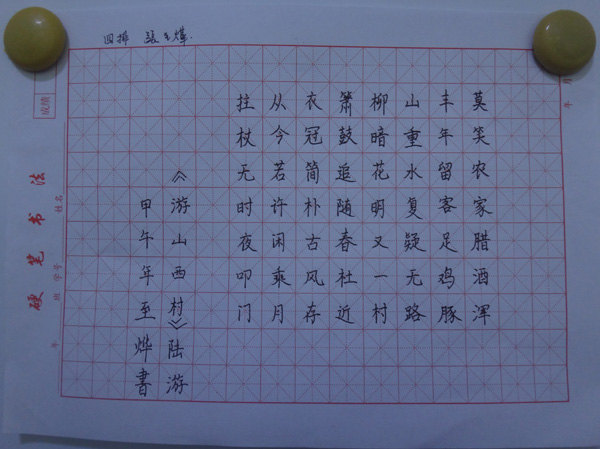 莫笑农家腊酒浑
丰年留客足鸡豚
山重水复疑无路
柳暗花明又一村
箫鼓追随春社近
衣冠简朴古风存
从今若许闲乘月
拄杖无时夜叩门
《游山西村》陆游
甲午年至烨書
硬笔书法
姓名
学号
班
年
成绩
月
年
四排